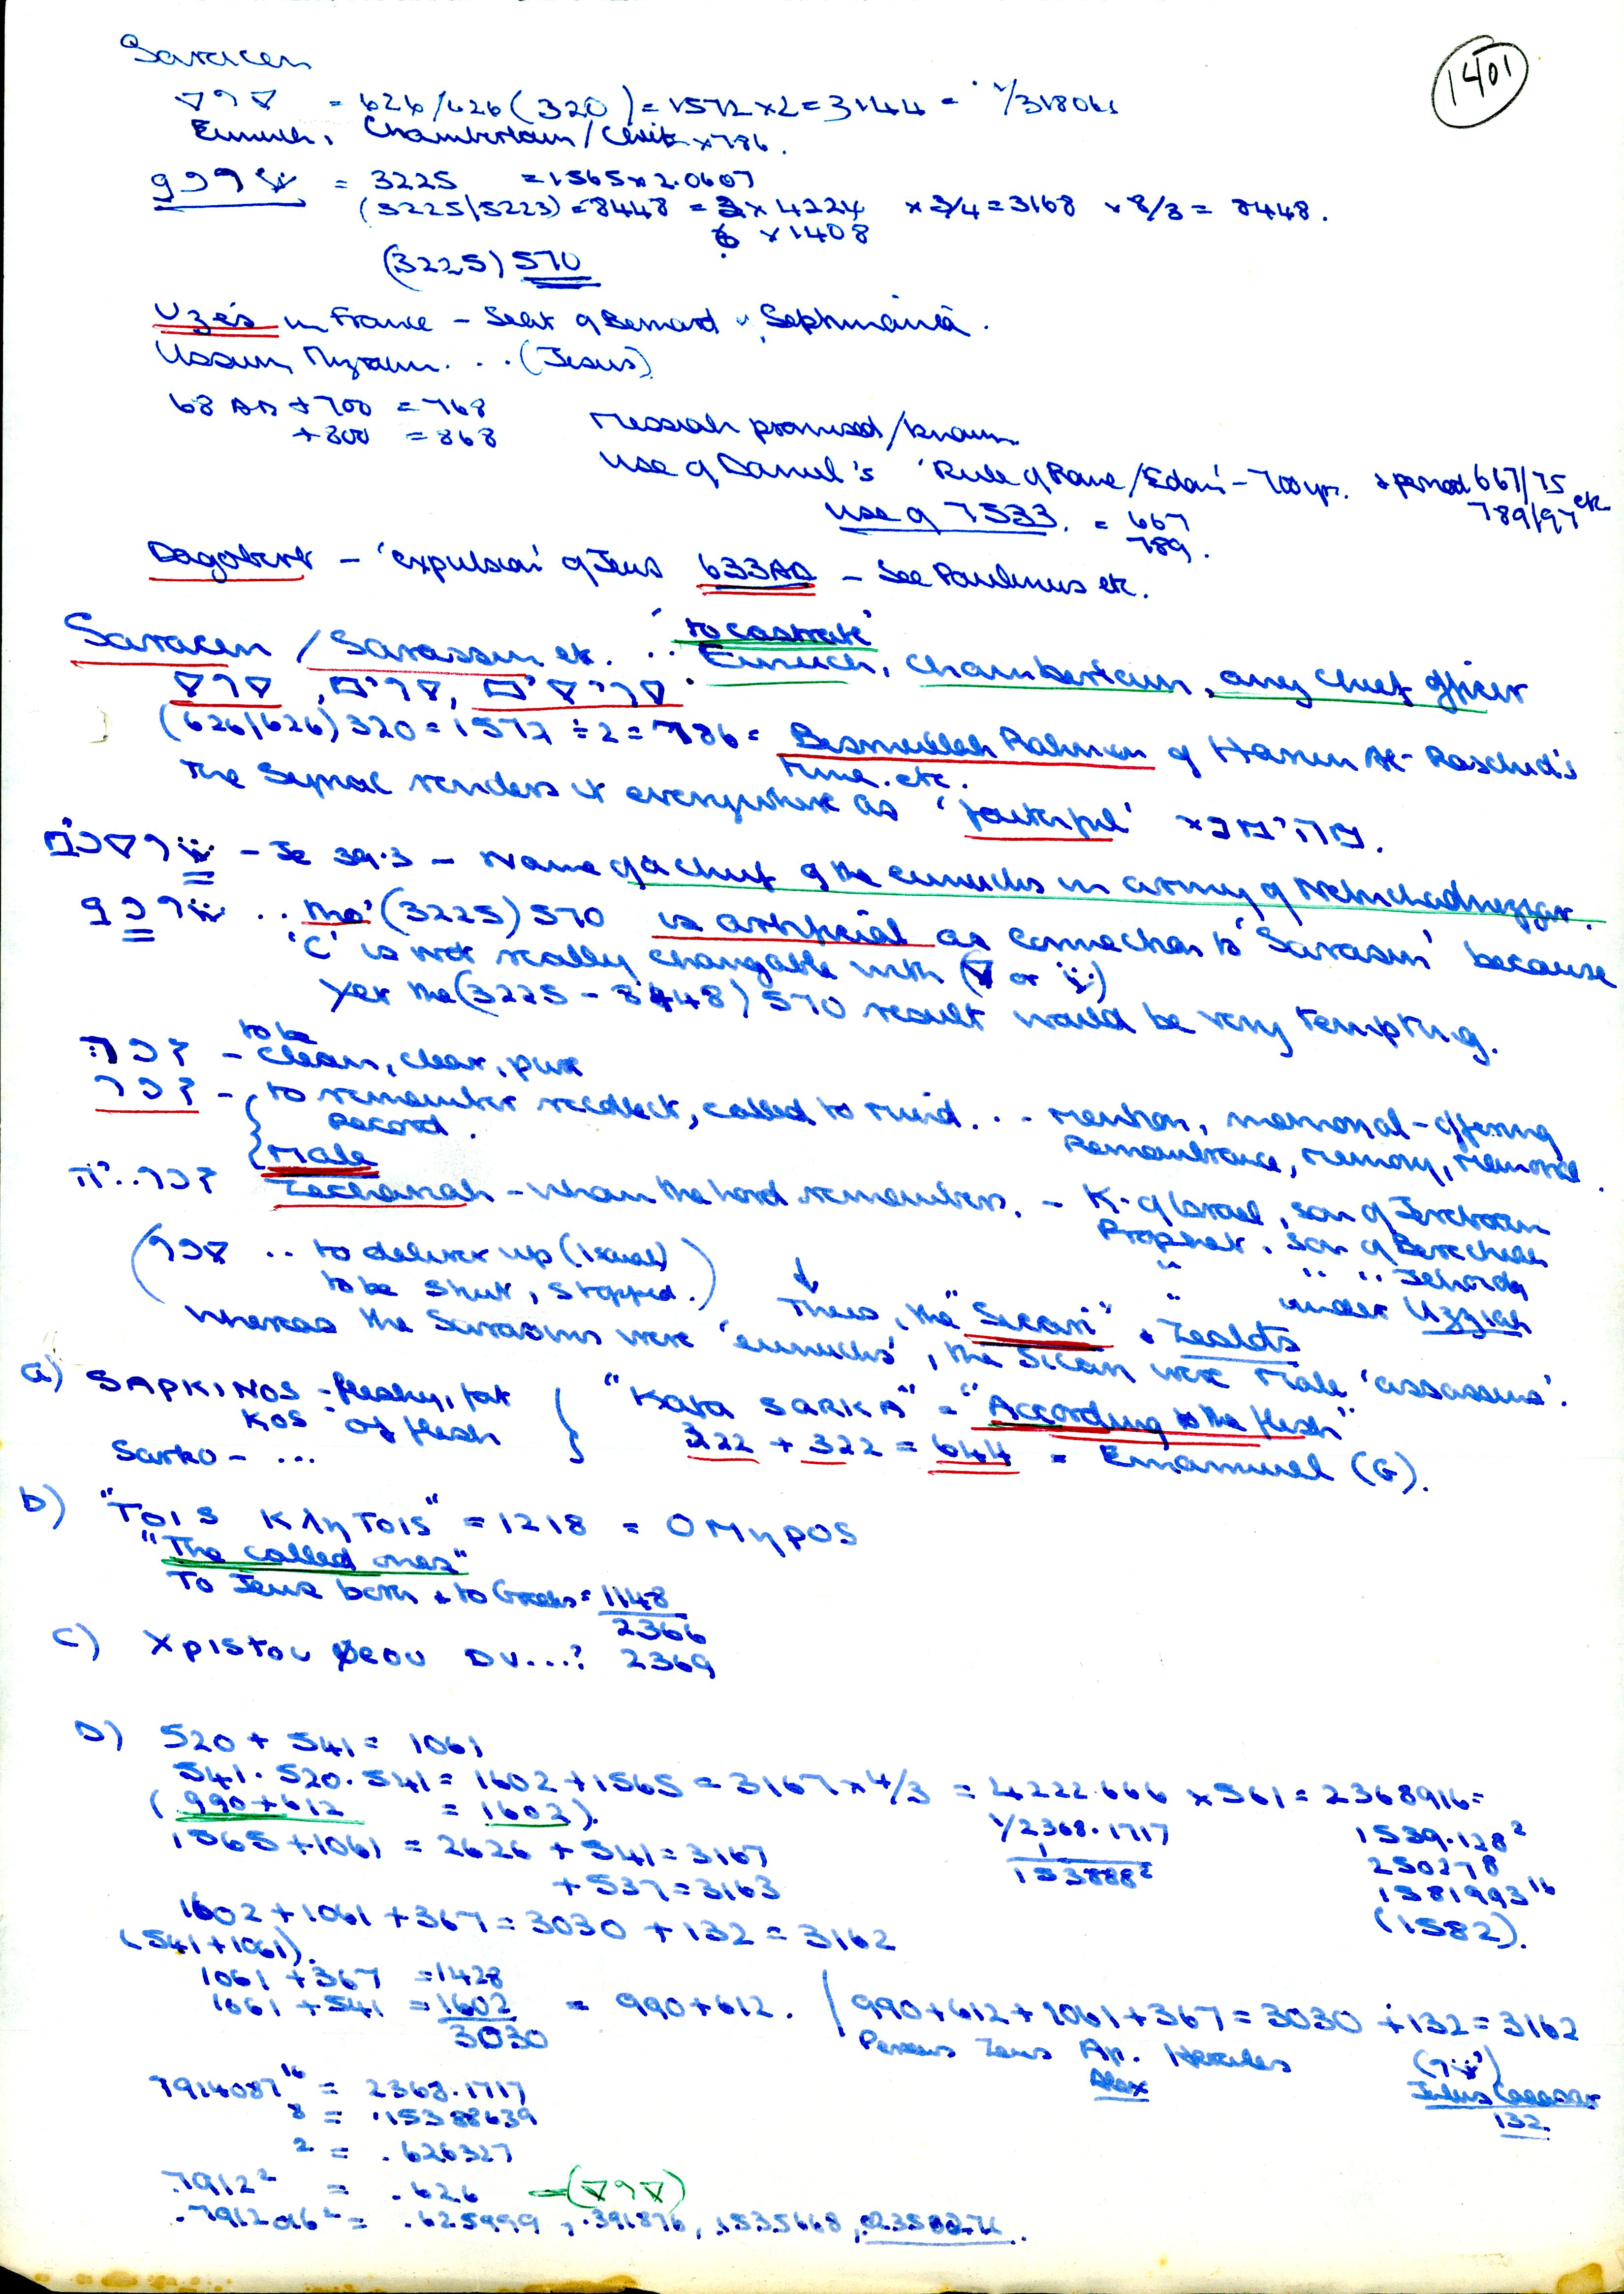 Saracen
1401
סרס = 626/626 (320) = 1572 x 2 = 3144 = 1/318061
Eunuch, Chamberlain/Chief x 786.
= 3225 = 1565 x 2.0607
(3225/5223) = 8448 = 2 x 4224 x 3/4 = 3168 x 8/3 = 8448.
6 x 1408
(3225) 570
Uzés in France - Seat of Bernard of Septimania.
... (Jesus)
68 AD + 700 = 768
+ 800 = 868
Messiah promised/known.
use of Daniel's 'Rule of Rome/Edom' - 700 yrs. & period 667/75 etc
789/97
use of 7533. = 667
789.
Dagobert - 'expulsion' of Jews 633AD - See Paulinus etc.
'to castrate'
Saracen / Sarassin etc. .. Eunuch, chamberlain, any chief officer
סרס, סרים, סריסים
(626/626) 320 = 1572 ÷ 2 = 786 = Besmullah Rahman of Harun Al-Raschid's
time. etc.
The Syriac renders it everywhere as 'faithful'
- Je 39.3 - Name of a chief of the eunuchs in army of Nebuchadnezzar.
.. tho' (3225) 570 is artificial as connection to 'Sarasin' because
'C' is not really changable with (ס or ש)
Yet the (3225 - 8448) 570 result would be very tempting.
to be
זכה - clean, clear, pure
זכר - to remember recollect, called to mind... mention, memorial-offering
Record. Remembrance, memory, memorial.
Male
זכר..יה Zechariah - whom the Lord remembers. - K. of Israel, son of Jeroboam
Prophet, son of Berechiah
(סכר .. to deliver up (Isaiah) " " " Jehoida
to be shut, stopped.) " under Uzziah
Thus, the "Sicari" & Zealots
Whereas the Sarasins were 'eunuchs', the Sicari were Male 'assassins'.
a) SAPKINOS - fleshy, fat } "Kata SARKA" = "According to the flesh"
KOS - of flesh 322 + 322 = 644 = Emmanuel (G).
Sarko - ...
b) "TOIS KΛηTOIS" = 1218 = OMηPOS
"The called ones"
To Jews both & to Greeks = 1148
2366
c) Xpistou θeou DU...? 2369
D) 520 + 541 = 1061
541 . 520 . 541 = 1602 + 1565 = 3167 x 4/3 = 4222.666 x 561 = 2368916 =
(990 + 612 = 1602). 1/2368.1717 1539.128²
1565 + 1061 = 2626 + 541 = 3167 1 250278
+ 537 = 3163 153888² 1581993¹⁶
1602 + 1061 + 367 = 3030 + 132 = 3162 (1582).
(541 + 1061).
1061 + 367 = 1428
1061 + 541 = 1602 = 990 + 612. / 990 + 612 + 1061 + 367 = 3030 + 132 = 3162
3030 Perseus Zeus Ap. Hercules
Alex Julius Caeasar
132
7914087¹⁶ = 2368.1717
⁸ = .15388639
² = .626327
.7912² = .626 = (סרס)
.7912016² = .625999, .391876, .1535668,